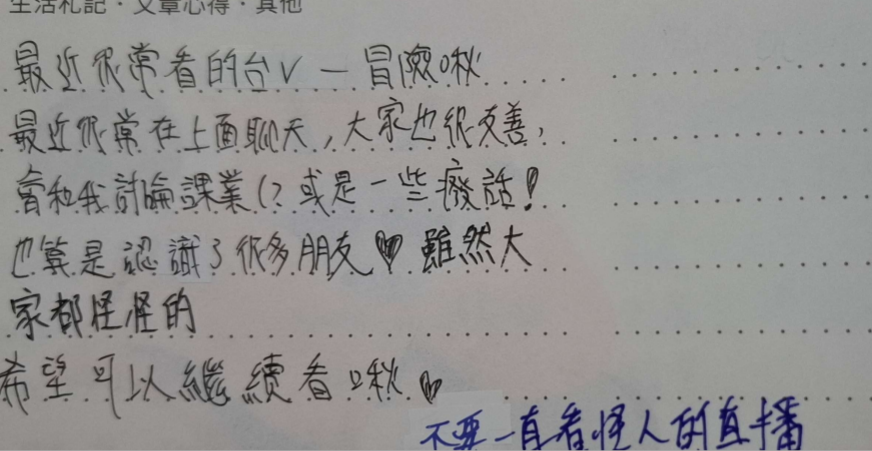 生活札記．文章心得．其他
最近很常看的台V－冒險啾
最近很常在上面聊天，大家也很友善，
會和我討論課業(？或是一些廢話！
也算是認識了很多朋友♥雖然大
家都怪怪的
希望可以繼續看啾♥
不要一直看怪人的直播